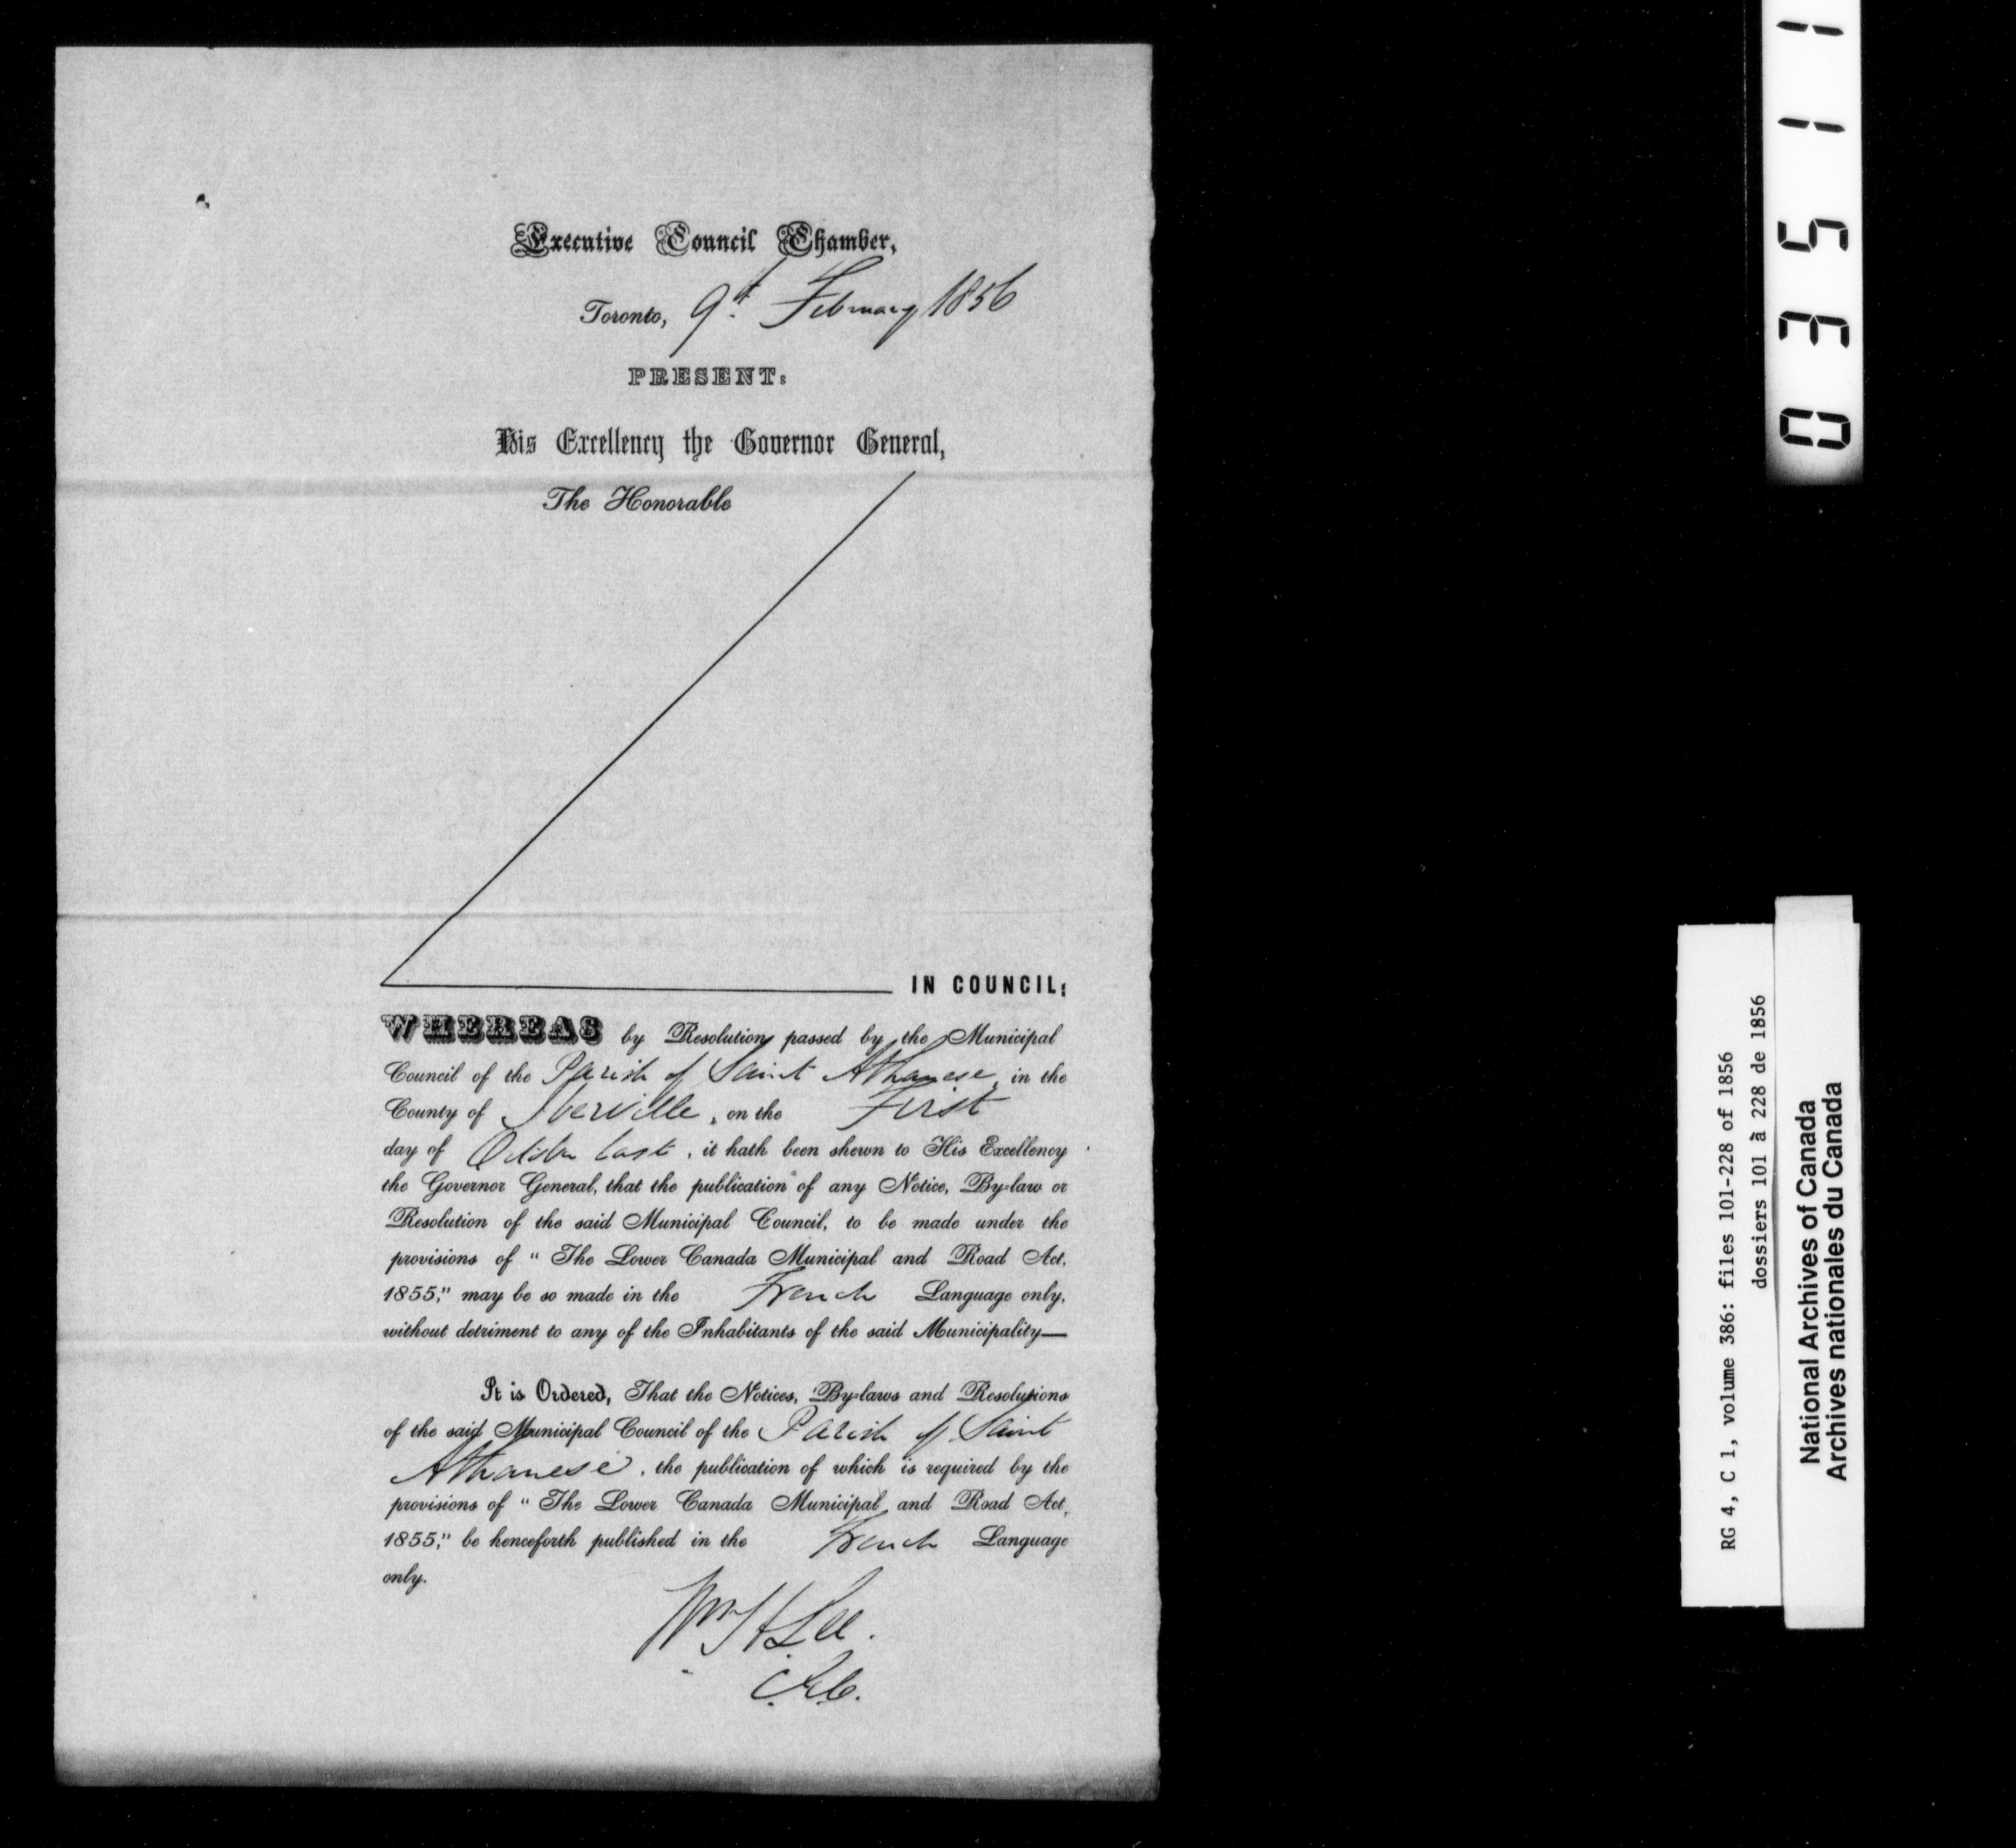 Executive Council Chamber,
Toronto, 9th February 1856
PRESENT:
His Excellency the Governor General,
The Honorable
IN COUNCIL:
WHEREAS by Resolution passed by the Municipal
Council of the Parish of Saint Athanese, in the
County of Iberville, on the First
day of October last, it hath been shewn to His Excellency
the Governor General, that the publication of any Notice, By-law or
Resolution of the said Municipal Council, to be made under the
provisions of "The Lower Canada Municipal and Road Act,
1855," may be so made in the French Language only,
without detriment to any of the Inhabitants of the said Municipality—
It is Ordered, That the Notices, By-laws and Resolutions
of the said Municipal Council of the Parish of Saint
Athanese, the publication of which is required by the
provisions of "The Lower Canada Municipal and Road Act,
1855," be henceforth published in the French Language
only.
Wm H Lee.
C.E.C.
03511
RG 4, C 1, volume 386: files 101-228 of 1856
dossiers 101 à 228 de 1856
National Archives of Canada
Archives nationales du Canada